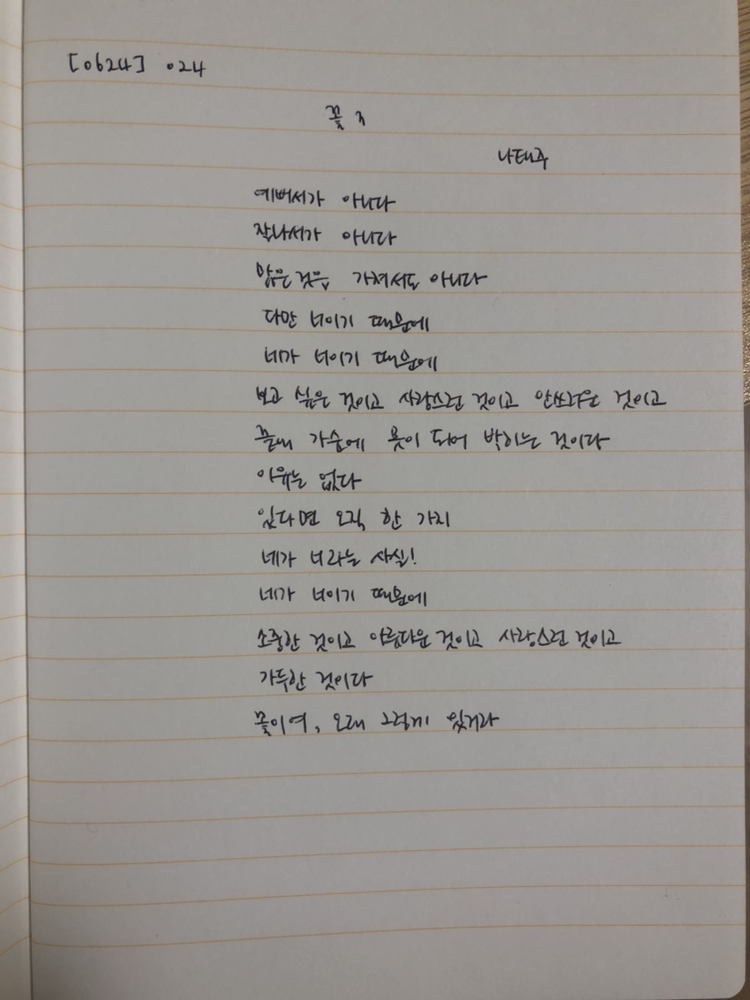 [0624] 024
꽃 3
나태주
예뻐서가 아니다
잘나서가 아니다
많은 것을 가져서도 아니다
다만 너이기 때문에
네가 너이기 때문에
보고 싶은 것이고 사랑스런 것이고 안쓰러운 것이고
끝내 가슴에 못이 되어 박히는 것이다
이유는 없다
있다면 오직 한 가지
네가 너라는 사실!
네가 너이기 때문에
소중한 것이고 아름다운 것이고 사랑스런 것이고
가득한 것이다
꽃이여, 오래 그렇게 있거라